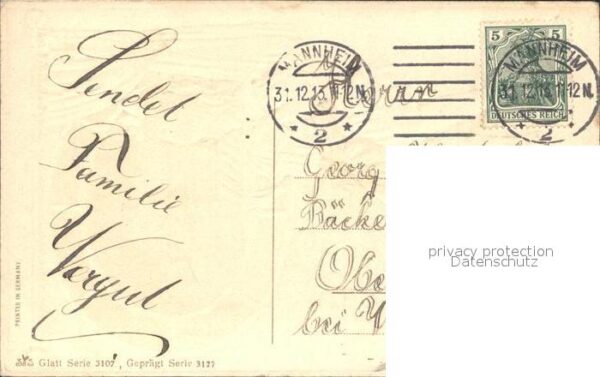 Sendet
Familie
PRINTED IN GERMANY
Glatt Serie 3107, Geprägt Serie 3127
MANNHEIM
31.12.13.11-12N.
* 2 *
Herrn
5 5
DEUTSCHES REICH
MANNHEIM
31.12.13.11-12N.
* 2 *
Georg
Bäcke
Obe
bei
privacy protection
Datenschutz